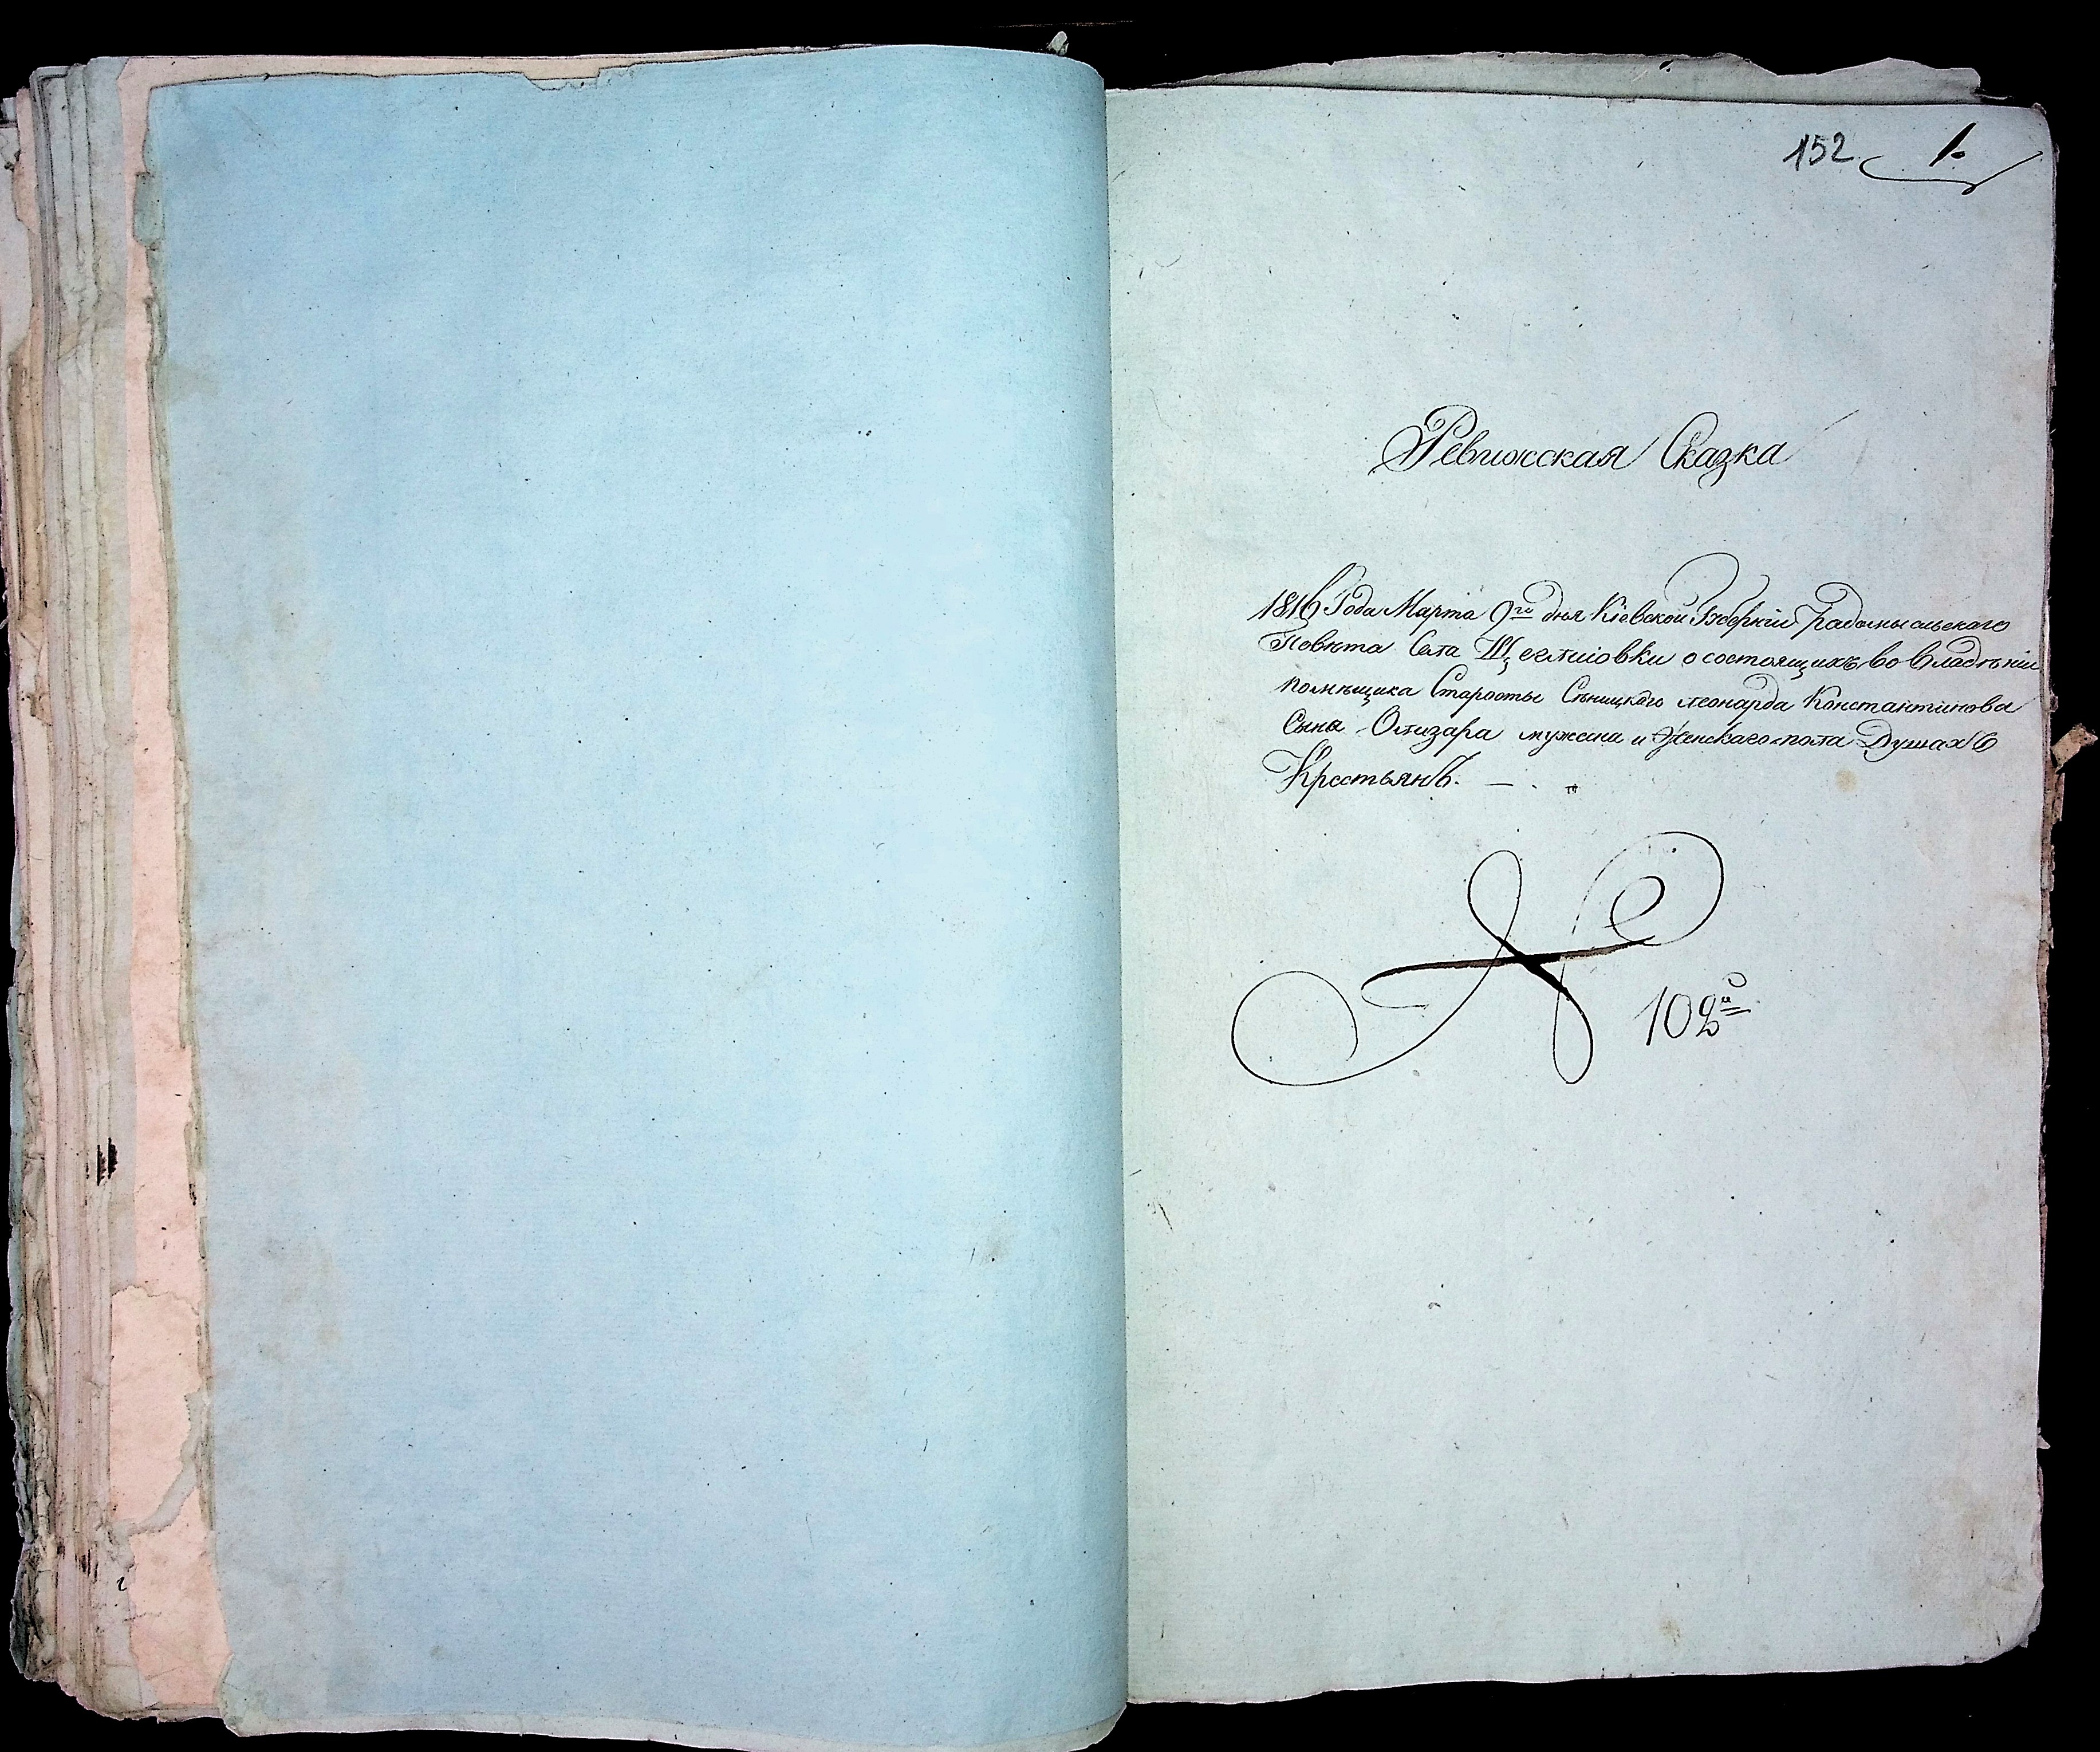 152 1.
Ревижская Сказка
1816 Года Марта 9го дня Кіевской Губерніи Радомысльскаго
Повѣта Села Щеглиіовки о состоящихъ во Владѣніи
помѣщика Старосты Сѣницкого леонарда Константинова
Сына Олизара мужеска и Женскаго пола Душахъ
Крестьянъ.
102й